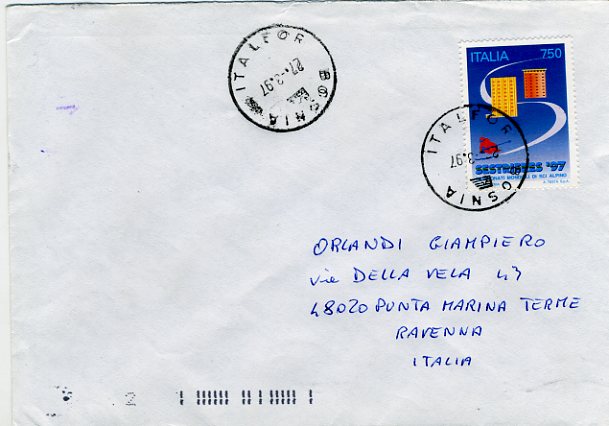 ITALFOR BOSNIA
27.3.97
ITALIA 750
ITALFOR BOSNIA
3.97
SESTRIERES '97
MONDIALI DI SCI ALPINO
ORLANDI GIAMPIERO
Via DELLA VELA 47
48020 PUNTA MARINA TERME
RAVENNA
ITALIA